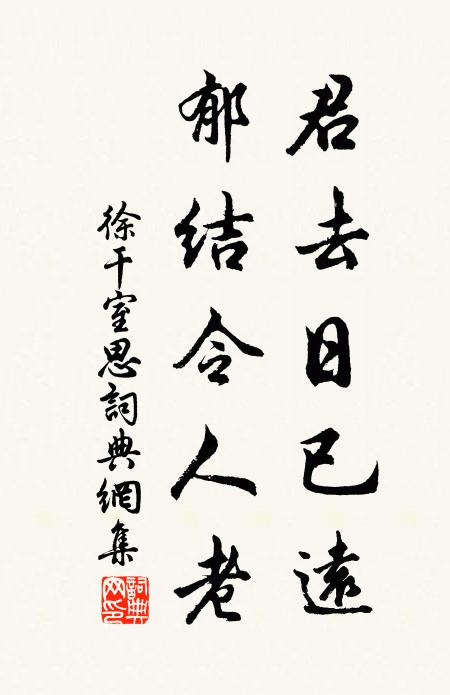 君去日已遠
郁结令人老
徐干室思詞典網集
詞典网印